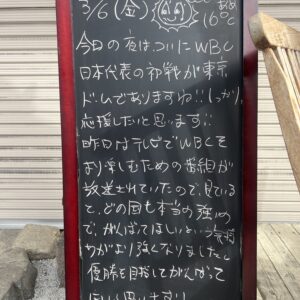 3/6(金)
16℃
今日の夜はついにWBC
日本代表の初戦が東京
ドームでありますね!!しっかり
応援したいと思います!!
昨日はテレビでWBCを
より楽しむための番組が
放送されていたので、見ている
と、どの国も本当の強いの
で、がんばってほしいという気持
ちがより強くなりました。
優勝を目指してがんばって
ほしい思います!!